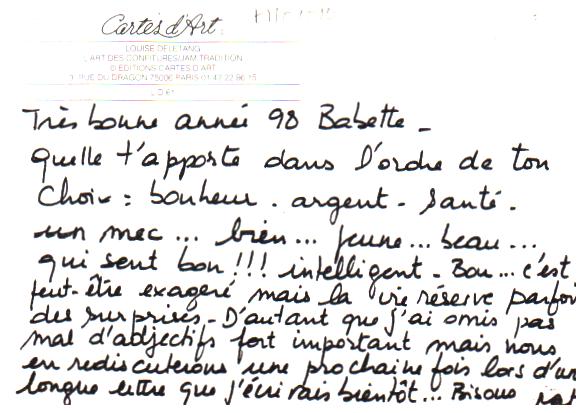 Cartes d'Art
LOUISE DELETANG
L'ART DES CONFITURES/JAM TRADITION
© EDITIONS CARTES D'ART
RUE DU DRAGON 75006 PARIS 01 42 22 86 15
Très bonne année 98 Babette -
quelle t'apporte dans l'ordre de ton
choix : bonheur . argent - santé -
un mec ... bien ... jeune ... beau ...
qui sent bon !!! intelligent - Bon ... c'est
peut-être exageré mais la vie réserve parfoi
des surprises - D'autant que j'ai omis pas
mal d'adjectifs fort important mais nous
en rediscuterions une prochaine fois lors d'un
longue lettre que j'écrirais bientôt ... Bisous